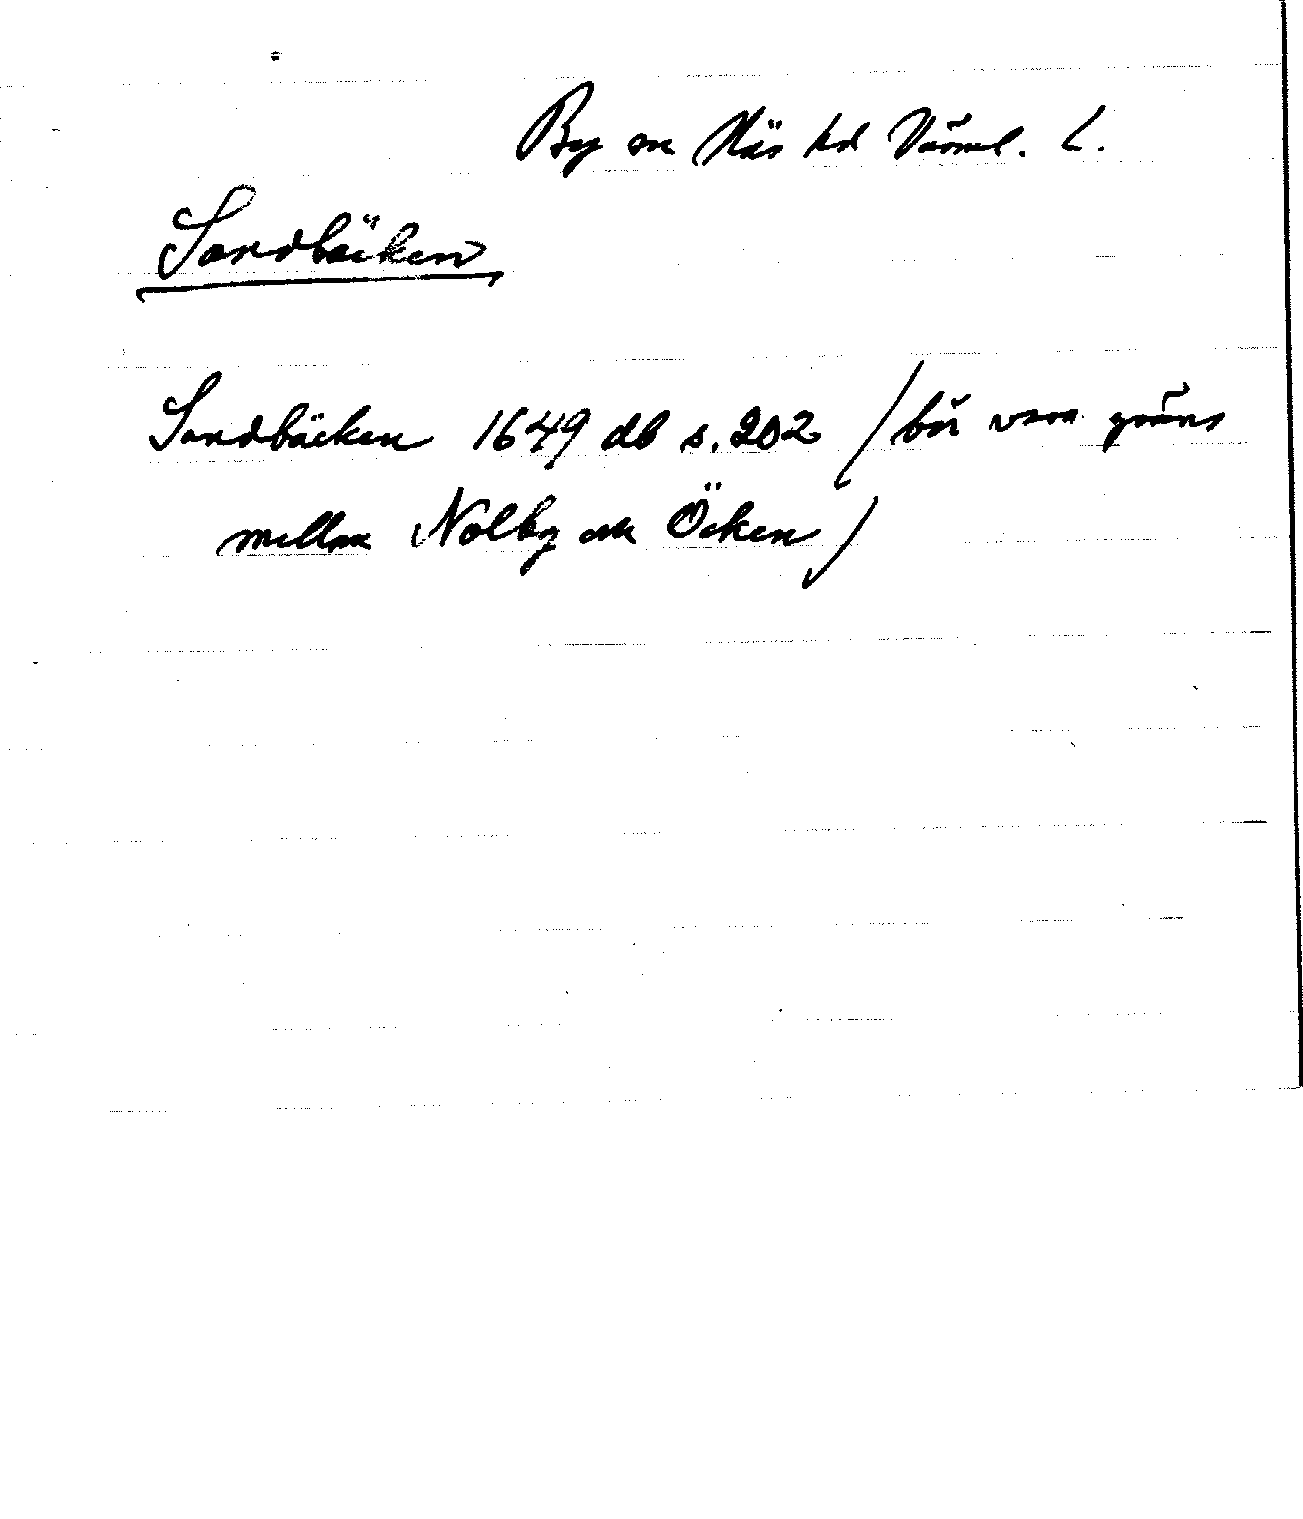 By sn Näs hd Värml. L.
Sandbäcken
Sandbäcken 1649 db s. 202 / bör vara gräns
mellan Nolby och Öcken /